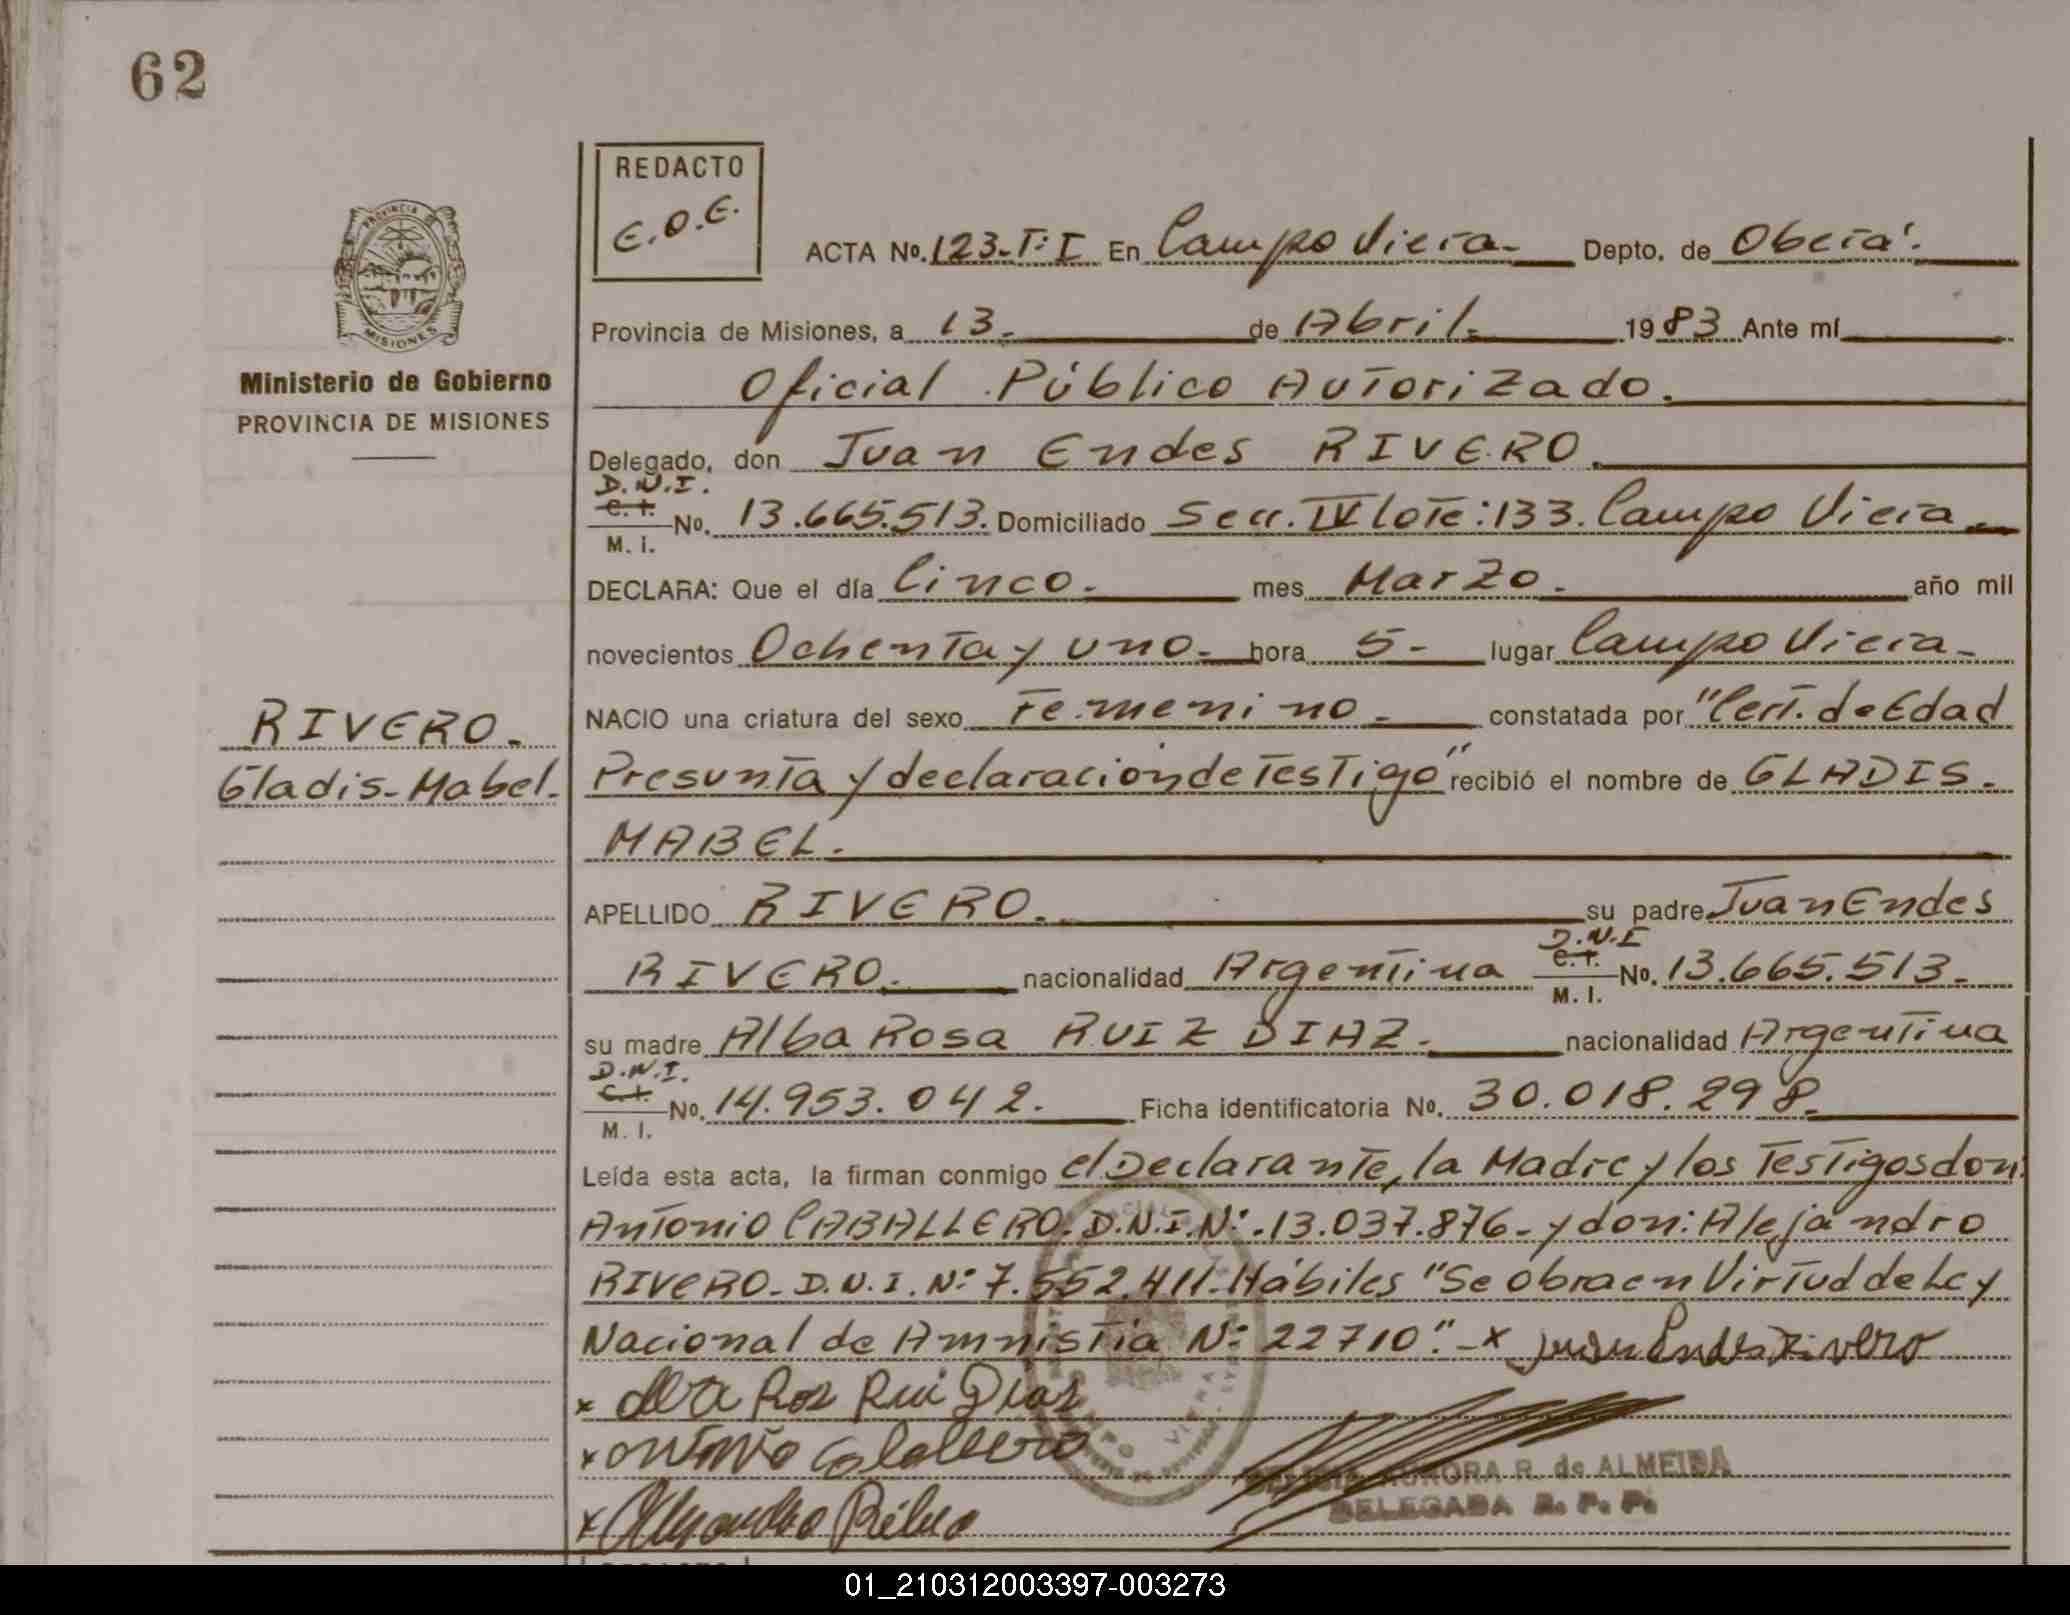 62
REDACTO
E.O.E.
PROVINCIA DE
MISIONES
Ministerio de Gobierno
PROVINCIA DE MISIONES
ACTA No. 123-T:I En Campo Viera. Depto. de Oberá.
Provincia de Misiones, a 13. de Abril. 1983 Ante mí
Oficial Público Autorizado.
Delegado, don Juan Endes RIVERO.
D.N.I.
C. I. No. 13.665.513. Domiciliado Secc. IV lote: 133. Campo Viera.
M. I.
DECLARA: Que el día Cinco. mes Marzo. año mil
novecientos Ochenta y uno. hora 5- lugar Campo Viera-
RIVERO.
Gladis-Mabel.
NACIO una criatura del sexo Femenino. constatada por "Cert. de Edad
Presunta y declaracion de testigo" recibió el nombre de GLADIS.
MABEL.
APELLIDO RIVERO. su padre Juan Endes
D.N.I
RIVERO. nacionalidad Argentina C. I. No. 13.665.513.
M. I.
su madre Alba Rosa RUIZ DIAZ. nacionalidad Argentina
D.N.I.
C. I. No. 14.953.042. Ficha identificatoria No. 30.018.298.
M. I.
Leída esta acta, la firman conmigo el Declarante, la Madre y los Testigos don:
Antonio CABALLERO. D.N.I. N:. 13.037.876- y don: Alejandro
RIVERO- D.N.I. N: 7.552.411. Hábiles "Se obra en Virtud de Ley
Nacional de Amnistia N: 22710".- x Juan Endes Rivero
x Alva Ros Rui Dias
x antonio Caballero
x Alejandro Ribero
AURORA R. de ALMEIDA
DELEGADA R. P. P.
01_210312003397-003273